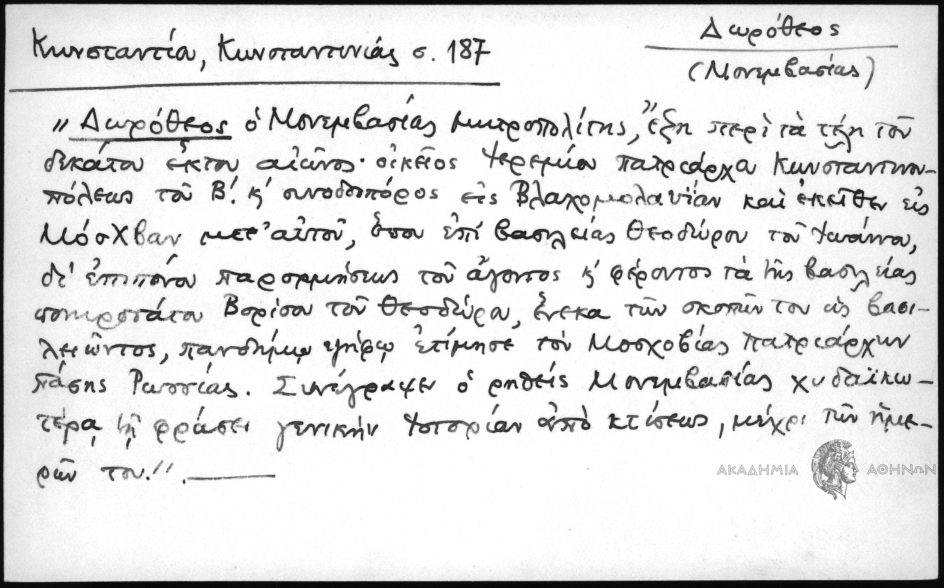 Δωρόθεος
Κωνσταντία, Κωνσταντινιάς σ. 187
(Μονεμβασίας)
"Δωρόθεος ὁ Μονεμβασίας μητροπολίτης, ἔζη περὶ τὰ τέλη τοῦ
δεκάτου ἕκτου αἰῶνος· οἰκεῖος Ἱερεμίου πατριάρχα Κωνσταντινου-
πόλεως τοῦ Β΄. κ' συνοδοπόρος εἰς Βλαχομολαυΐαν καὶ ἐκεῖθεν εἰς
Μόσχβαν μετ' αὐτοῦ, ὅπου ἐπὶ βασιλείας Θεοδώρου τοῦ Ἰωάννου,
δι' ἐπιπόνου παρορμήσεως τοῦ ἄγοντος κ' φέροντος τὰ τῆς βασιλείας
πονηροτάτου Βορίσου τοῦ Θεοδώρου, ἕνεκα τῶν σκοπῶν του ὡς βασι-
λειῶντος, πανδήμῳ ψήφῳ ἐτίμησε τὸν Μοσχοβίας πατριάρχην
πάσης Ρωσσίας. Συνέγραψεν ὁ ρηθεὶς Μονεμβασίας χυδαϊκω-
τέρᾳ τῇ φράσει γενικὴν Ἱστορίαν ἀπὸ κτίσεως, μέχρι τῶν ἡμε-
ρῶν του."
ΑΚΑΔΗΜΙΑ ΑΘΗΝΩΝ